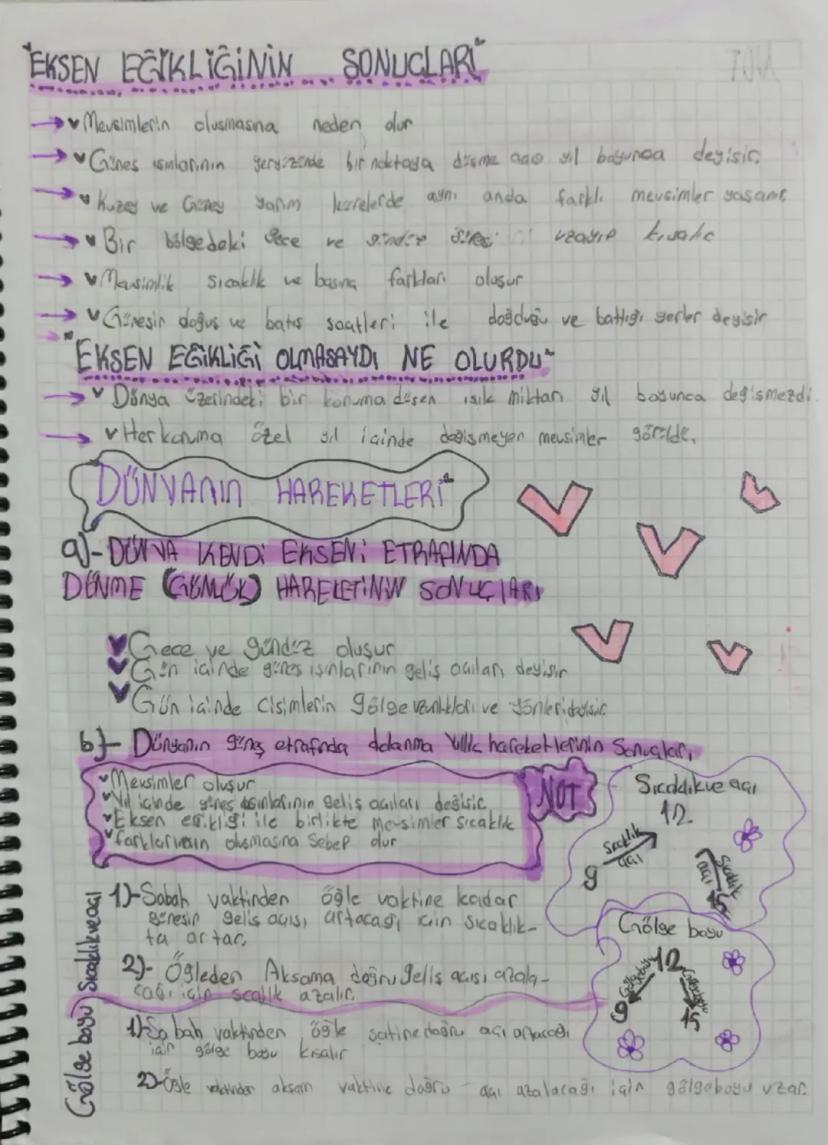 "EKSEN EĞİKLİĞİNİN SONUÇLARI"
Mevsimlerin oluşmasına neden dur
Güneş ışınlarının yeryüzünde bir noktaya düşme açısı yıl boyunca değişir.
Kuzey ve Güney yarım kürelerde aynı anda farklı mevsimler yaşanır
Bir bölgedeki Gece ve gündüz süresi uzayıp kısalır
Mevsimlik sıcaklık ve basınç farkları oluşur
Güneşin doğuş ve batış saatleri ile doğduğu ve battığı yerler değişir
"EKSEN EĞİKLİĞİ OLMASAYDI NE OLURDU"
Dünya üzerindeki bir konuma düşen ışık miktarı yıl boyunca değişmezdi.
Her konuma özel yıl içinde değişmeyen mevsimler görülür.
DÜNYANIN HAREKETLERİ"
a)- DÜNYA KENDİ EKSENİ ETRAFINDA
DÖNME (GÜNLÜK) HAREKETİNİN SONUÇLARI
Gece ve gündüz oluşur
Gün içinde güneş ışınlarının geliş açıları değişir
Gün içinde cisimlerin gölge uzunlukları ve yönleri değişir.
b)- Dünyanın güneş etrafında dolanma Yıllık hareketlerinin Sonuçları,
Mevsimler oluşur
Yıl içinde güneş ışınlarının geliş açıları değişir
Eksen eğikliği ile birlikte mevsimler sıcaklık
farklarının oluşmasına Sebep dur
NOT
Sıcaklık ve açı
12
Sıcaklık
açı
9
Sıcaklık
açı
15
Sıcaklık ve açı
1)- Sabah vaktinden öğle vaktine kadar
güneşin geliş açısı, artacağı için sıcaklık-
ta artar.
2)- Öğleden Akşama doğru geliş açısı azala-
cağı için sıcaklık azalır.
Gölge boyu
12
Gölgeboyu
9
Gölgeboyu
15
Gölge boyu
1)- Sabah vaktinden öğle saatine doğru açı artacağı
için gölge boyu kısalır
2)- Öğle vaktinden akşam vaktine doğru açı azalacağı için gölgeboyu uzar.